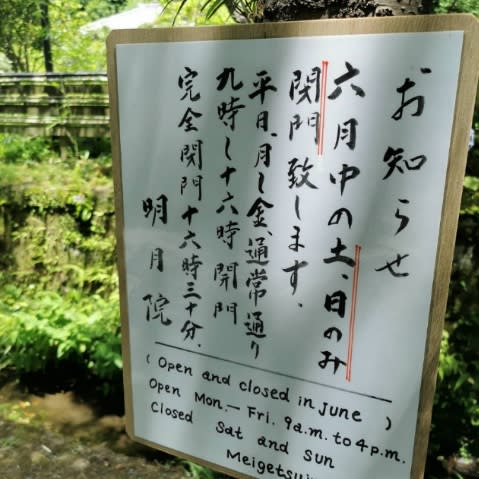 お知らせ
六月中の土、日のみ
閉門致します。
平日、月〜金、通常通り
九時〜十六時 開門
完全閉門 十六時三十分。
明月院
( Open and closed in June )
Open Mon.—Fri. 9a.m. to 4p.m.
Closed Sat and Sun
Meigetsuin